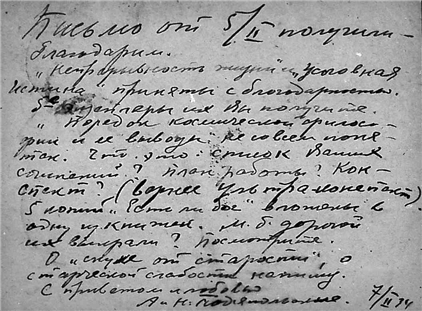 Письмо от 5/II получили –
благодарим.
„Непрерывность жизни и условная
истина" приняты с благодарностью.
5 экземпляры их Вы получите.
„Порядок космической филосо-
фии и ее выводы не совсем поня-
тен. Что это: список Ваших
сочинений? План работы? Кон-
спект? (вернее ультраконспект)
5 копий „Есть ли бог" вложены в
одну из книжек. М.б. дорогой
их выкрали? Посмотрите.
О „скуке от старости", о
старческой слабости напишу.
С приветом и любовью
А и К. Подъяпольские. 7/II 34